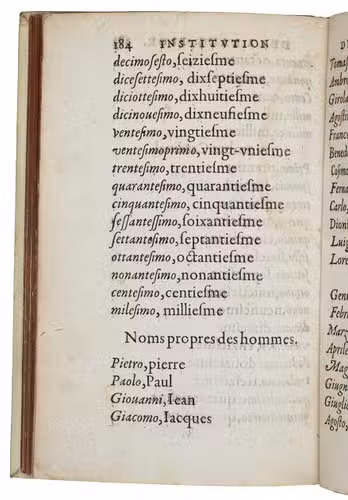 184 INSTITVTION
decimoſesto, ſeizieſme
dicesettesimo, dixſeptieſme
diciottesimo, dixhuitieſme
dicinouesimo, dixneufieſme
ventesimo, vingtieſme
ventesimoprimo, vingt-vnieſme
trentesimo, trentieſme
quarantesimo, quarantieſme
cinquantesimo, cinquantieſme
ſeſſanteſſimo, ſoixantieſme
settantesimo, ſeptantieſme
ottantesimo, octantieſme
nonantesimo, nonantieſme
centesimo, centieſme
milesimo, millieſme
Noms propres des hommes.
Pietro, pierre
Paolo, Paul
Giouanni, Iean
Giacomo, Iacques
Tomaſ
Ambro
Girola
Agosti
France
Bened
Coſmo
Ferna
Carlo,
Dioni
Luig
Lore
Genn
Febra
Marz
Aprile
Mag
Giugn
Giuglio
Agosto,